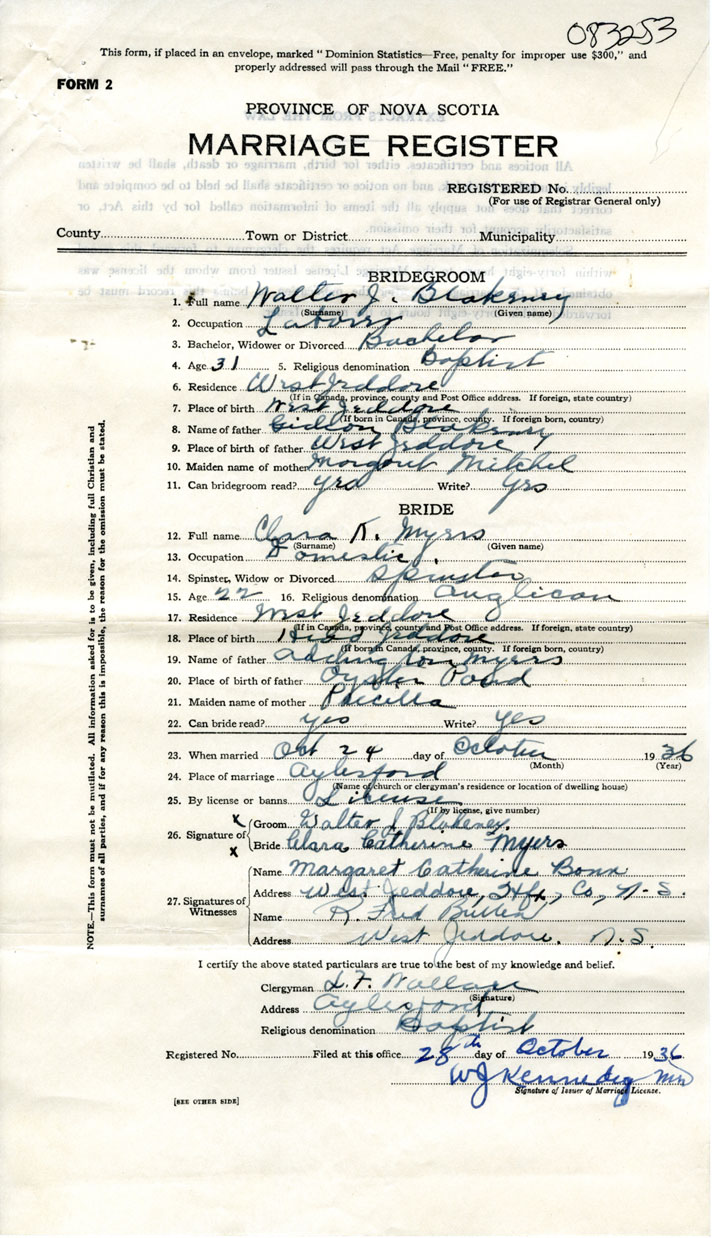 083253
This form, if placed in an envelope, marked "Dominion Statistics—Free, penalty for improper use $300," and
properly addressed will pass through the Mail "FREE."
FORM 2
PROVINCE OF NOVA SCOTIA
MARRIAGE REGISTER
REGISTERED No.
(For use of Registrar General only)
County Town or District Municipality
BRIDEGROOM
1. Full name Walter J. Blakeney
(Surname) (Given name)
2. Occupation Laborer
3. Bachelor, Widower or Divorced Bachelor
4. Age 31 5. Religious denomination Baptist
6. Residence West Jeddore
(If in Canada, province, county and Post Office address. If foreign, state country)
7. Place of birth West Jeddore
(If born in Canada, province, county. If foreign born, country)
8. Name of father Gideon Blakeney
9. Place of birth of father West Jeddore
10. Maiden name of mother Margaret Mitchel
11. Can bridegroom read? yes Write? yes
BRIDE
12. Full name Clara K. Myers
(Surname) (Given name)
13. Occupation Domestic
14. Spinster, Widow or Divorced Spinster
15. Age 22 16. Religious denomination Anglican
17. Residence West Jeddore
(If in Canada, province, county and Post Office address. If foreign, state country)
18. Place of birth Head Jeddore
(If born in Canada, province, county. If foreign born, country)
19. Name of father Addington Myers
20. Place of birth of father Oyster Pond
21. Maiden name of mother Pricilla
22. Can bride read? yes Write? yes
23. When married Oct 24 day of October 1936
(Month) (Year)
24. Place of marriage Aylesford
(Name of church or clergyman's residence or location of dwelling house)
25. By license or banns License
(If by license, give number)
26. Signature of
X Groom Walter J Blakeney.
X Bride Clara Catherine Myers
27. Signatures of Witnesses
Name Margaret Catherine
Address West Jeddore, Hfx, Co, N-S.
Name R. Fred
Address West Jeddore. N.S.
I certify the above stated particulars are true to the best of my knowledge and belief.
Clergyman L. F. Wallace
(Signature)
Address Aylesford
Religious denomination Baptist
Registered No. Filed at this office 28th day of October 1936
W J Kennedy
Signature of Issuer of Marriage License.
[SEE OTHER SIDE]
NOTE.—This form must not be mutilated. All information asked for is to be given, including full Christian and
surnames of all parties, and if for any reason this is impossible, the reason for the omission must be stated.